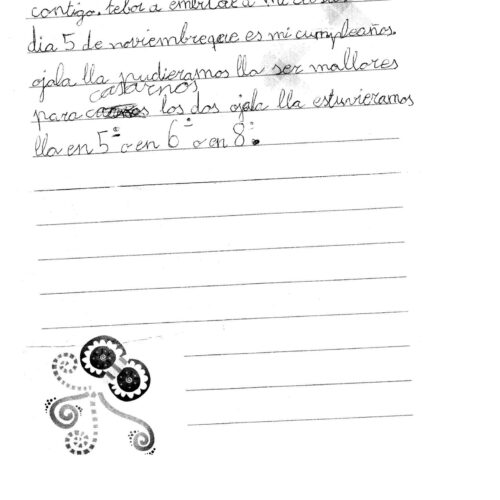 contigo. teboi a embitar a mi
dia 5 de noviembreqere es mi cumpleaños.
ojala lla pudieramos lla ser mallores
casarnos
para los dos ojala lla estuvieramos
lla en 5º o en 6º o en 8º.